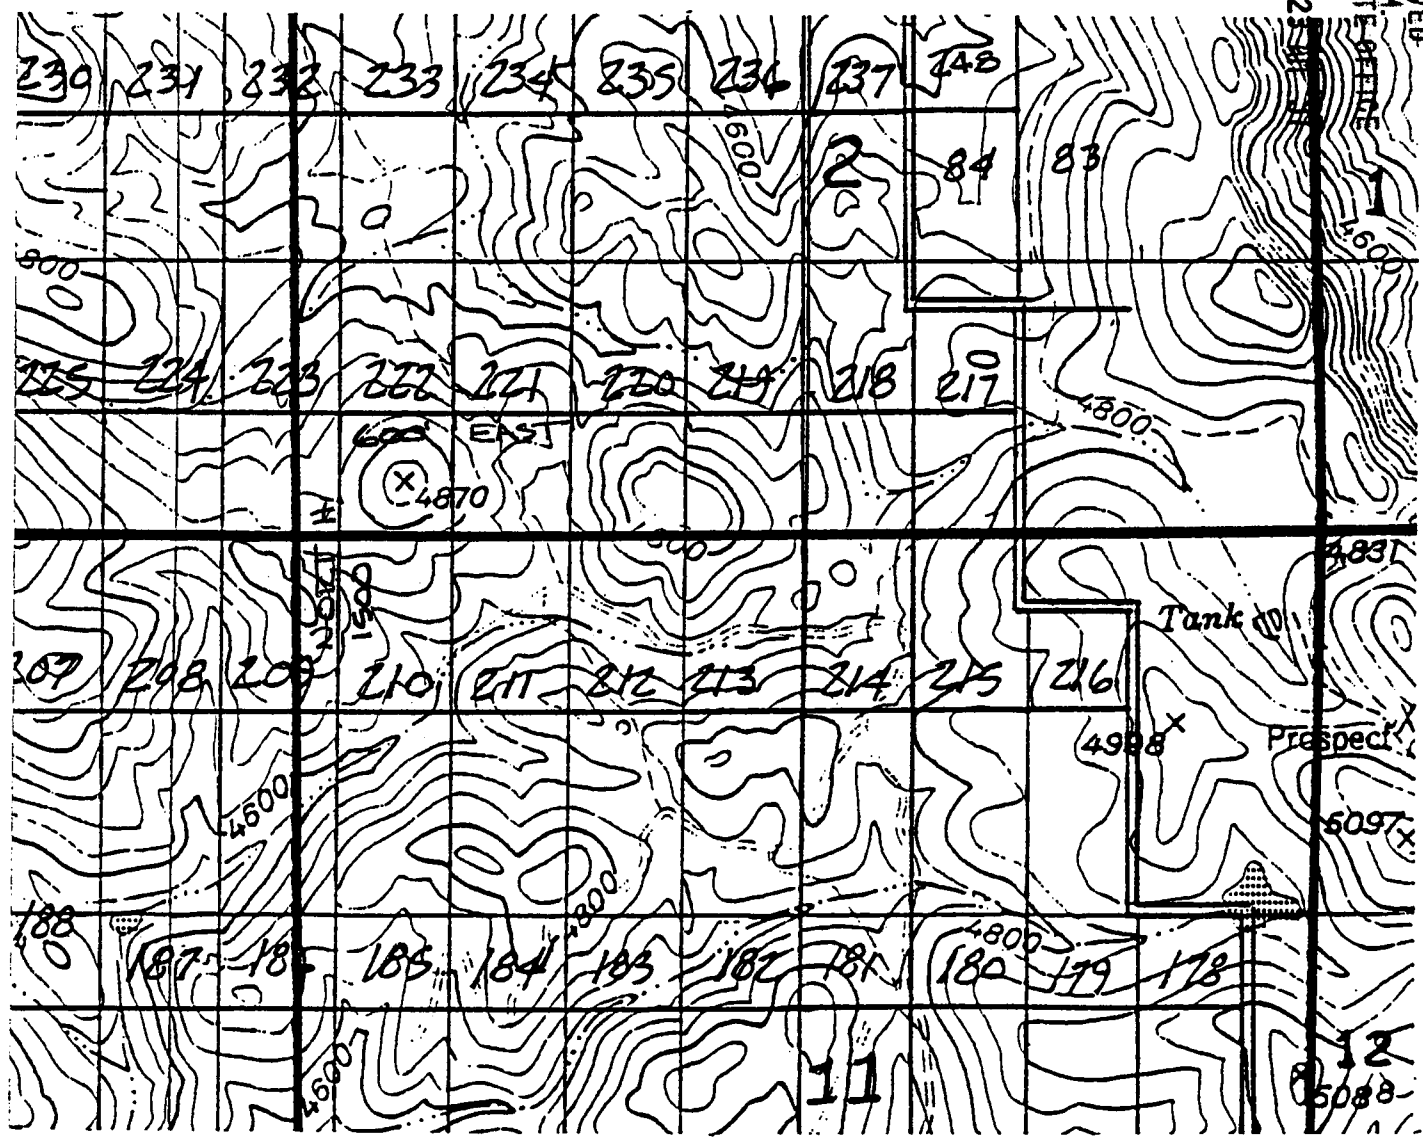 230 231 232 233 234 235 236 237 248
4600
2 84 83 1
800 4600
225 224 223 222 221 220 219 218 217 0
600' EAST 4800
4870
4831
1500
Tank
207 208 209 210 211 212 213 214 215 216
4998 Prospect
4600 5097
4800
188
4800
187 185 184 183 182 181 180 179 178
4600 11 12
5088